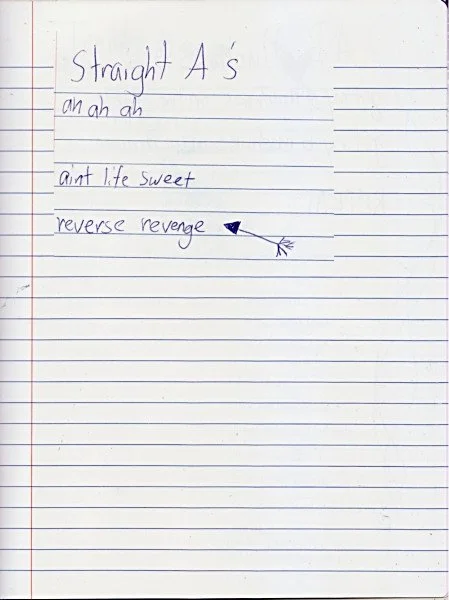 Straight A's
ah ah ah
aint life sweet
reverse revenge